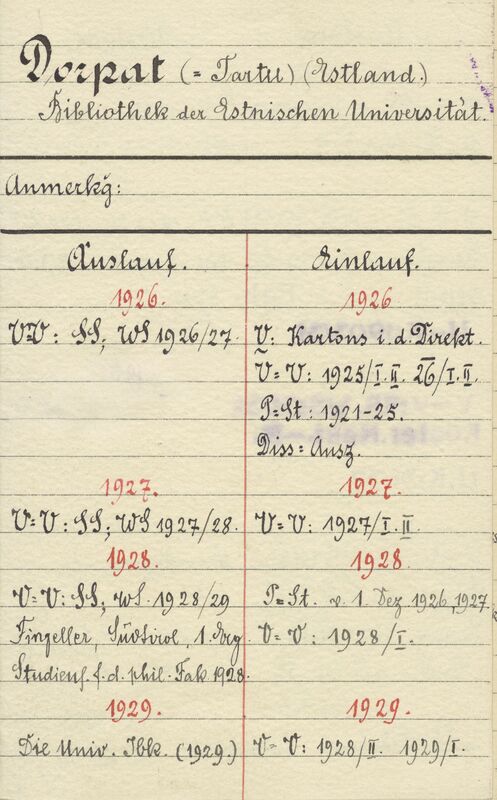 Dorpat (= Tartu) (Estland.)
Bibliothek der Estnischen Universität.
Anmerkg:
Auslauf.
1926.
V=V: SS; WS 1926/27
1927.
V=V: SS; WS 1927/28.
1928.
V=V: SS; WS. 1928/29
Fingeller, Südtirol, 1. Erg.
Studienf. f. d. phil. Fak. 1928.
1929.
Die Univ. Ibk. (1929.)
Einlauf.
1926
V: Kartons i. d. Direkt.
V=V: 1925/I. II. 26/I. II.
P=St: 1921-25.
Diss=Ausz.
1927.
V=V: 1927/I. II.
1928.
P=St. v. 1. Dez 1926, 1927.
V=V: 1928/I.
1929.
V=V: 1928/II. 1929/I.